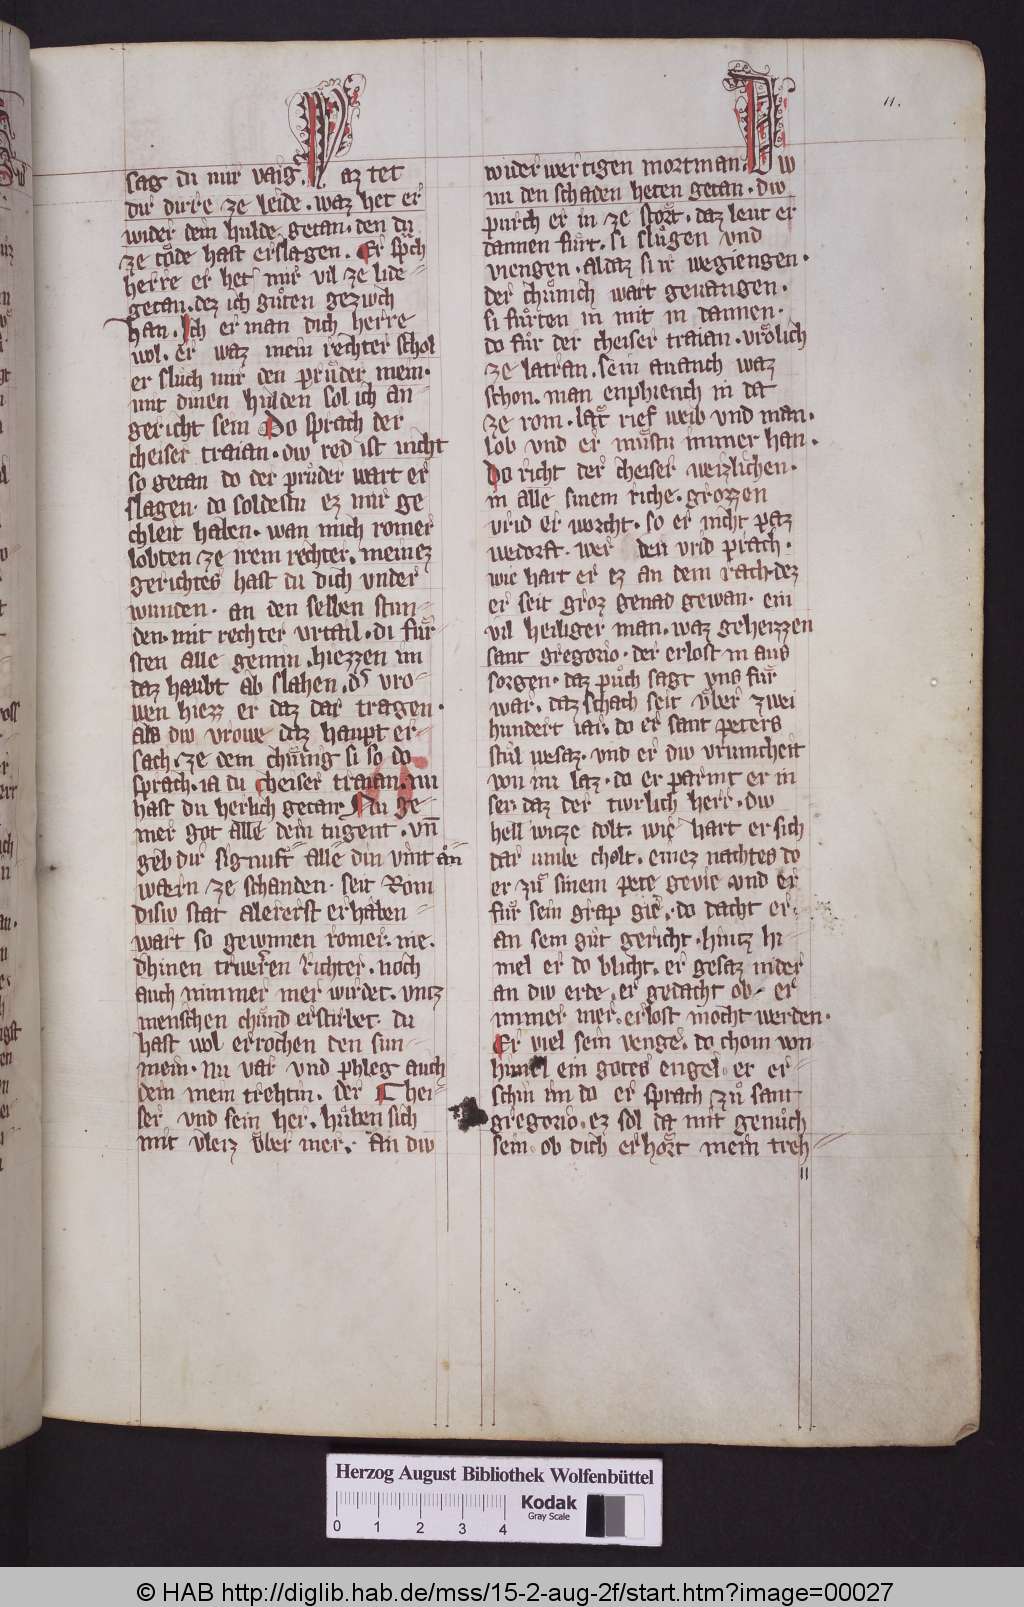 11.
sag du mir vaig. Waz tet
dir dirre ze leide. waz het er
wider dein hulde getan. den du
ze tode hast erslagen. Er sp̄ch
herre er het mir vil ze lide
getan. dez ich guͦten gezivch
han. Ich er man dich herre
wol. er waz mein rechter schol
er sluͦch mir den pruͦder mein.
mit dinen hulden sol ich an
gericht sein Do sprach der
cheiser traian. div red ist nicht
so getan do der pruͦder wart er
slagen. do soldestu ez mir ge
chleit haben. wan mich romer
lobten ze irem rechter. meinez
gerichtes hast du dich vnder
wunden. an den selben stun
den. mit rechter vrtail. di fuͤr
sten alle gemin. hiezzen im
daz haubt ab slahen. d' vro
wen hiezz er daz dar tragen.
als div vrowe daz haupt er
sach. ze dem chuͤnig si so do
sprach. ia du cheiser traian. nu
hast du herlich getan Nu ge
mer got alle dein tugent. vn̄
geb dir signuft alle din vint an
warn ze schanden. seit Rom
disiv stat alererst erhaben
wart so gewinnen romer. nie.
dhinen triweren richter. noch
auch nimmer mer wirdet. vntz
menschen chuͦnd erstirbet. du
hast wol errochen den sun
mein. nu var vnd phleg auch
dein mein trehtin. der Chei
ser vnd sein her. huͦben sich
mit vleiz vber mer. An div
widerwertigen mortman. Div
im den schaden heten getan. div
purch er in ze stort. daz leut er
dannen fuͤrt. si sluͦgen vnd
viengen. al daz si ir wegiengen.
der chuͦnich wart geuangen.
si fuͦrten in mit in dannen.
do fuͦr der cheiser traian. vroͤlich
ze latran. sein ananch waz
schon. man enphiench in da
ze rom. lat rief weib vnd man.
lob vnd er muͦstu immer han.
Do richt der cheiser weizlichen.
in alle sinem riche. grozzen
vrid er worcht. so er nicht paz
wedorft. wer den vrid prach.
wie hart er ez an dem rach. dez
er seit groz genad gewan. ein
vil heiliger man. waz geheizzen
sant gregorio. der erlost in aus
sorgen. daz puͦch sagt vns fuͤr
war. daz schach seit vber zwei
hundert iar. do er sant peters
stuͦl wesaz. vnd er div vrumcheit
von im laz. do er parmt er in
ser. daz der tiwrlich herr. div
hell witze dolt. wie hart er sich
dar umbe cholt. einez nachtes do
er zuͦ sinem pete gevie vnd er
fuͤr sein grap gie. do dacht er
an sein guͦt gericht. hintz hi
mel er do blicht. er gesaz nider
an div erde. er gedacht ob er
immer mer. erlost mocht werden.
Er viel sein venge. do chom von
himel ein gotes engel er er
schin im do er sprach zuͦ sant
gregorio. ez sol da mit genuͦch
sein. ob dich erhort mein treh
11
Herzog August Bibliothek Wolfenbüttel
0 1 2 3 4
Kodak
Gray Scale
© HAB http://diglib.hab.de/mss/15-2-aug-2f/start.htm?image=00027